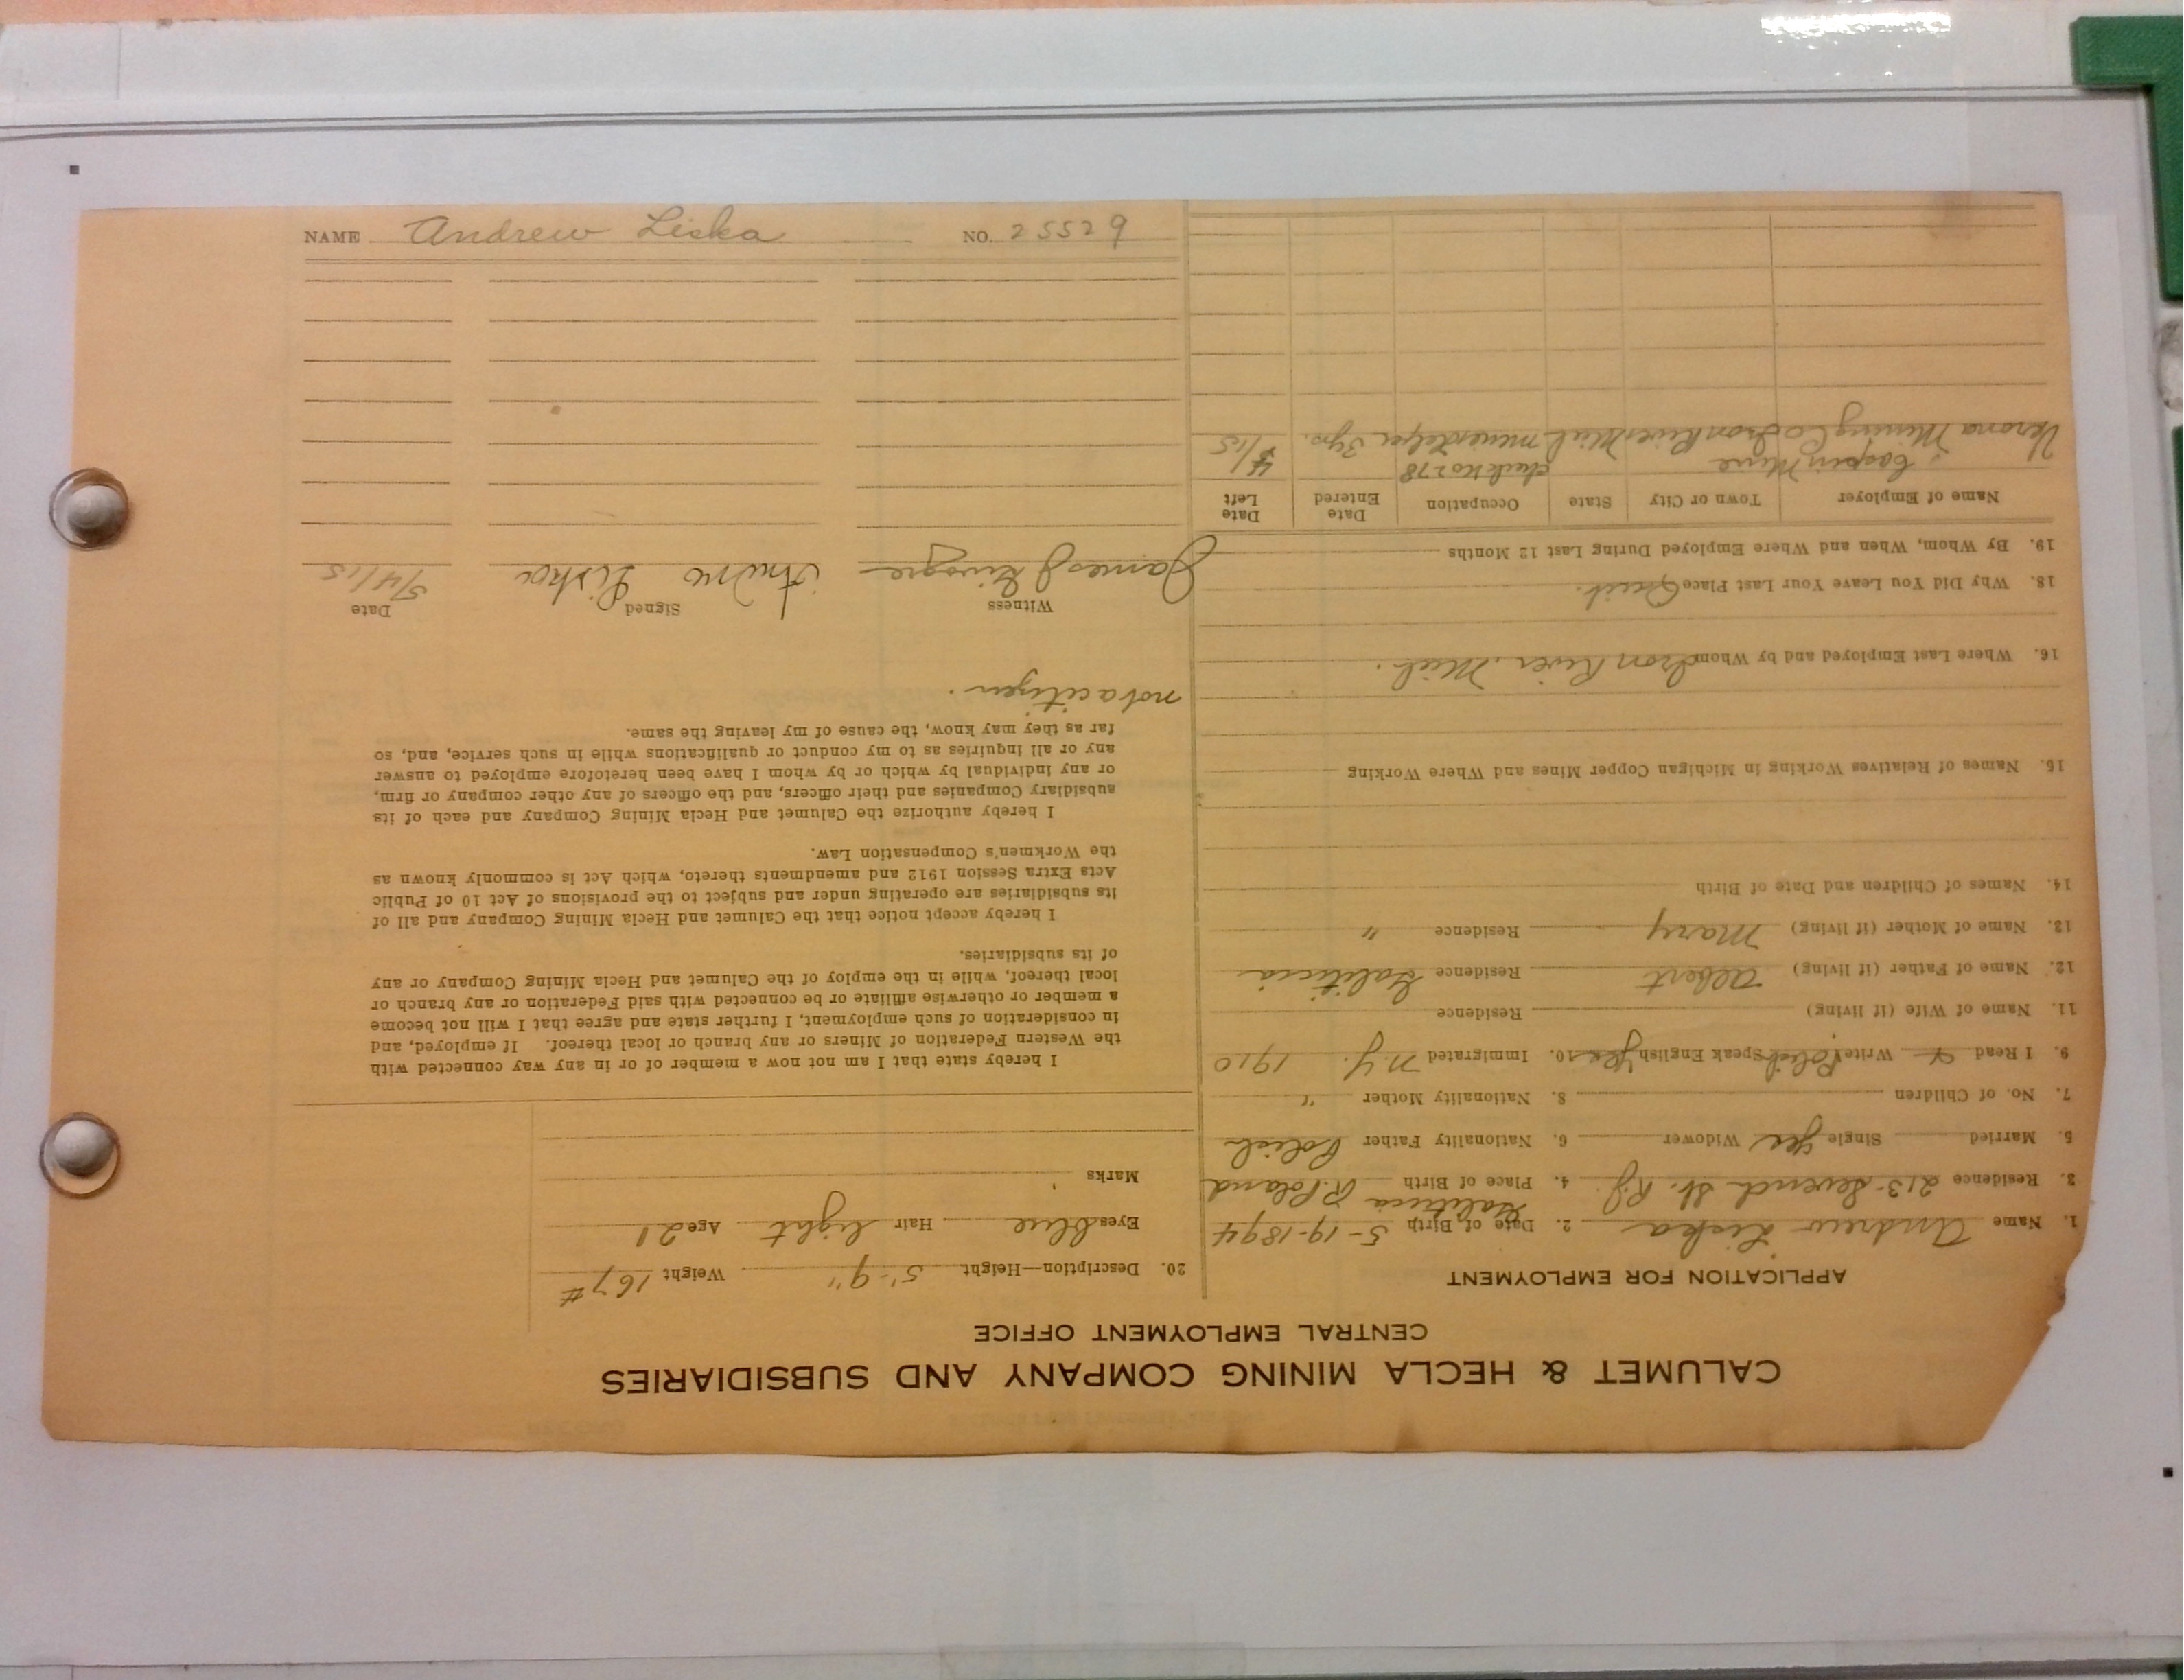 NAME Andrew Liska NO. 25529
CALUMET & HECLA MINING COMPANY AND SUBSIDIARIES
CENTRAL EMPLOYMENT OFFICE
APPLICATION FOR EMPLOYMENT
1. Name Andrew Liska 2. Date of Birth 5-19-1894
3. Residence 213-Seventh St. R.J. 4. Place of Birth Galiticia R. Poland
5. Married Single Yes Widower 6. Nationality Father Polish
7. No. of Children 8. Nationality Mother "
9. I Read & Write Polish Speak English Yes 10. Immigrated N.Y. 1910
11. Name of Wife (if living) Residence
12. Name of Father (if living) Albert Residence Galiticia
13. Name of Mother (if living) Mary Residence "
14. Names of Children and Date of Birth
15. Names of Relatives Working in Michigan Copper Mines and Where Working
16. Where Last Employed and by Whom Iron River, Mich.
18. Why Did You Leave Your Last Place Quit.
19. By Whom, When and Where Employed During Last 12 Months
Name of Employer Town or City State Occupation Date Entered Date Left
Caspin Mine check No 278 4/15
Verona Mining Co Iron River Mich miner helper 3 yrs.
20. Description—Height 5'-9" Weight 167#
Eyes blue Hair light Age 21
Marks
I hereby state that I am not now a member of or in any way connected with
the Western Federation of Miners or any branch or local thereof. If employed, and
in consideration of such employment, I further state and agree that I will not become
a member or otherwise affiliate or be connected with said Federation or any branch or
local thereof, while in the employ of the Calumet and Hecla Mining Company or any
of its subsidiaries.
I hereby accept notice that the Calumet and Hecla Mining Company and all of
its subsidiaries are operating under and subject to the provisions of Act 10 of Public
Acts Extra Session 1912 and amendments thereto, which Act is commonly known as
the Workmen's Compensation Law.
I hereby authorize the Calumet and Hecla Mining Company and each of its
subsidiary Companies and their officers, and the officers of any other company or firm,
or any individual by which or by whom I have been heretofore employed to answer
any or all inquiries as to my conduct or qualifications while in such service, and, so
far as they may know, the cause of my leaving the same.
not a citizen.
Witness Signed Date
James J Andrw Liska 5/4/15